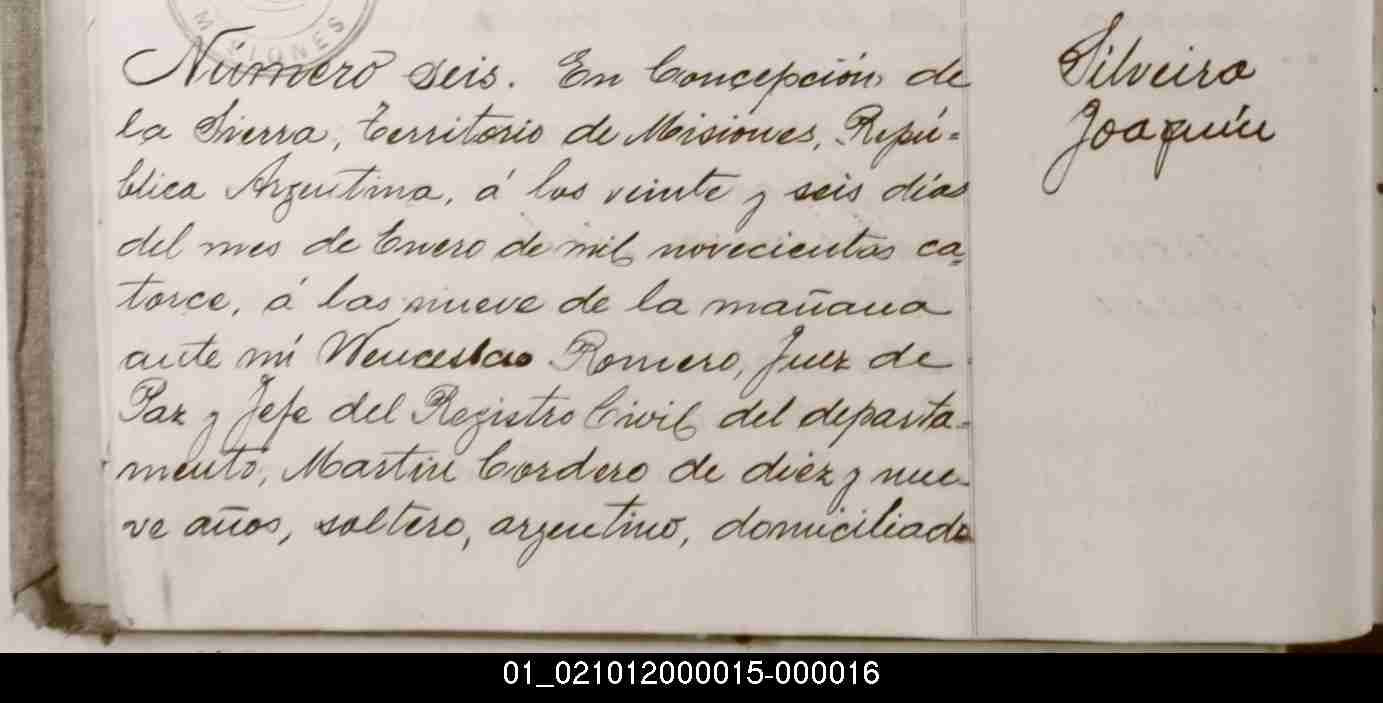 MISIONES
Número seis. En Concepción de
la Sierra, Territorio de Misiones, Repú=
blica Argentina, á los veinte y seis días
del mes de Enero de mil novecientos ca=
torce, á las nueve de la mañana
ante mí Wenceslao Romero, Juez de
Paz y Jefe del Registro Civil del departa=
mento, Martin Cordero de diez y nue-
ve años, soltero, argentino, domiciliado
Silveira
Joaquín
01_021012000015-000016